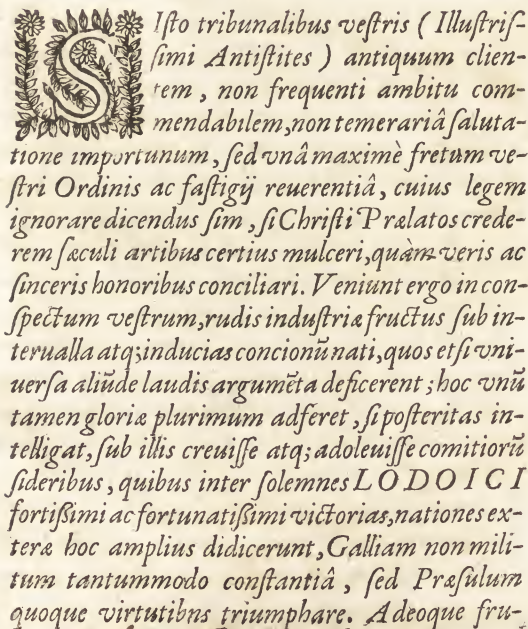 SIſto tribunalibus veſtris ( Illuſtriſ-
ſimi Antiſtites ) antiquum clien-
tem , non frequenti ambitu com-
mendabilem,non temerariâ ſaluta-
tione importunum , ſed vnâ maximè fretum ve-
ſtri Ordinis ac faſtigij reuerentiâ, cuius legem
ignorare dicendus ſim , ſi Chriſti Prælatos crede-
rem ſæculi artibus certius mulceri,quàm veris ac
ſinceris honoribus conciliari. Veniunt ergo in con-
ſpectum veſtrum,rudis induſtriæ fructus ſub in-
terualla atq;inducias concionũ nati,quos etſi vni-
uerſa aliũde laudis argumẽta deficerent ; hoc vnũ
tamen gloriæ plurimum adferet , ſi poſteritas in-
telligat, ſub illis creuiſſe atq; adoleuiſſe comitiorũ
ſideribus , quibus inter ſolemnes LODOICI
fortiſſimi ac fortunatiſſimi victorias,nationes ex-
teræ hoc amplius didicerunt , Galliam non mili-
tum tantummodo conſtantiâ , ſed Præſulum
quoque virtutibns triumphare. Adeoque fru-